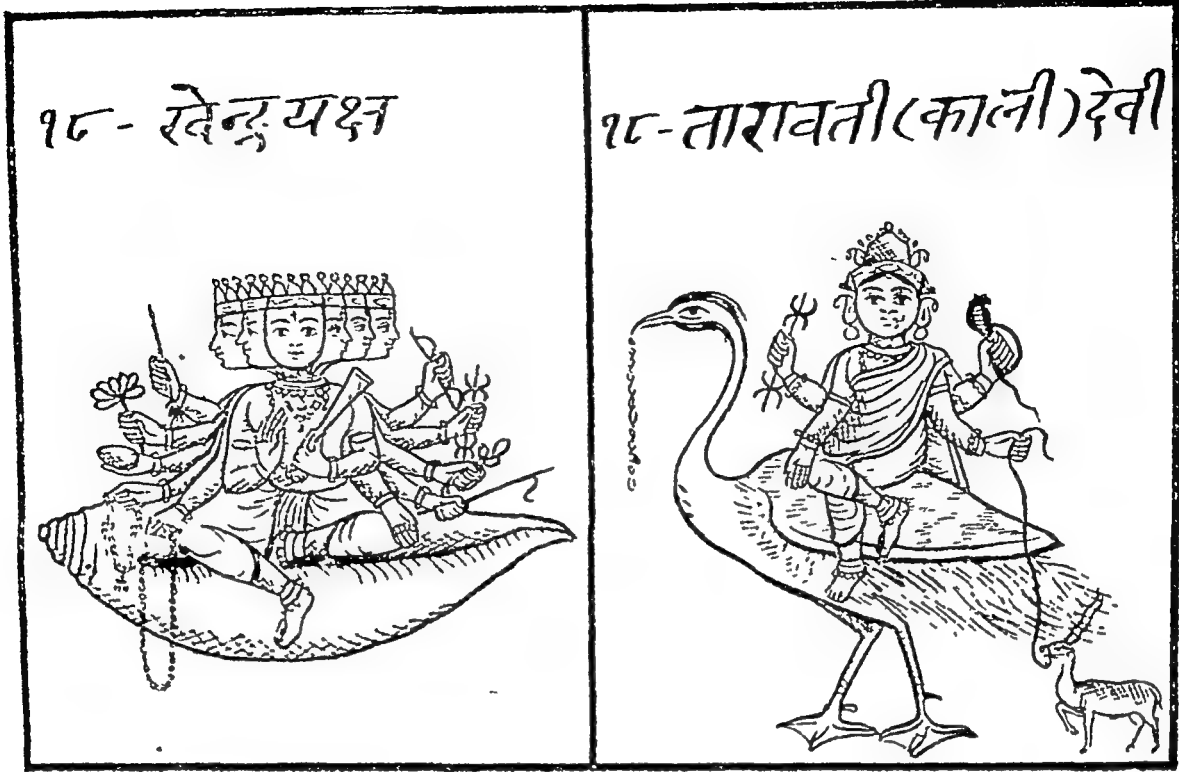 १८- खेन्द्र यक्ष
१८-तारावती (काली) देवी